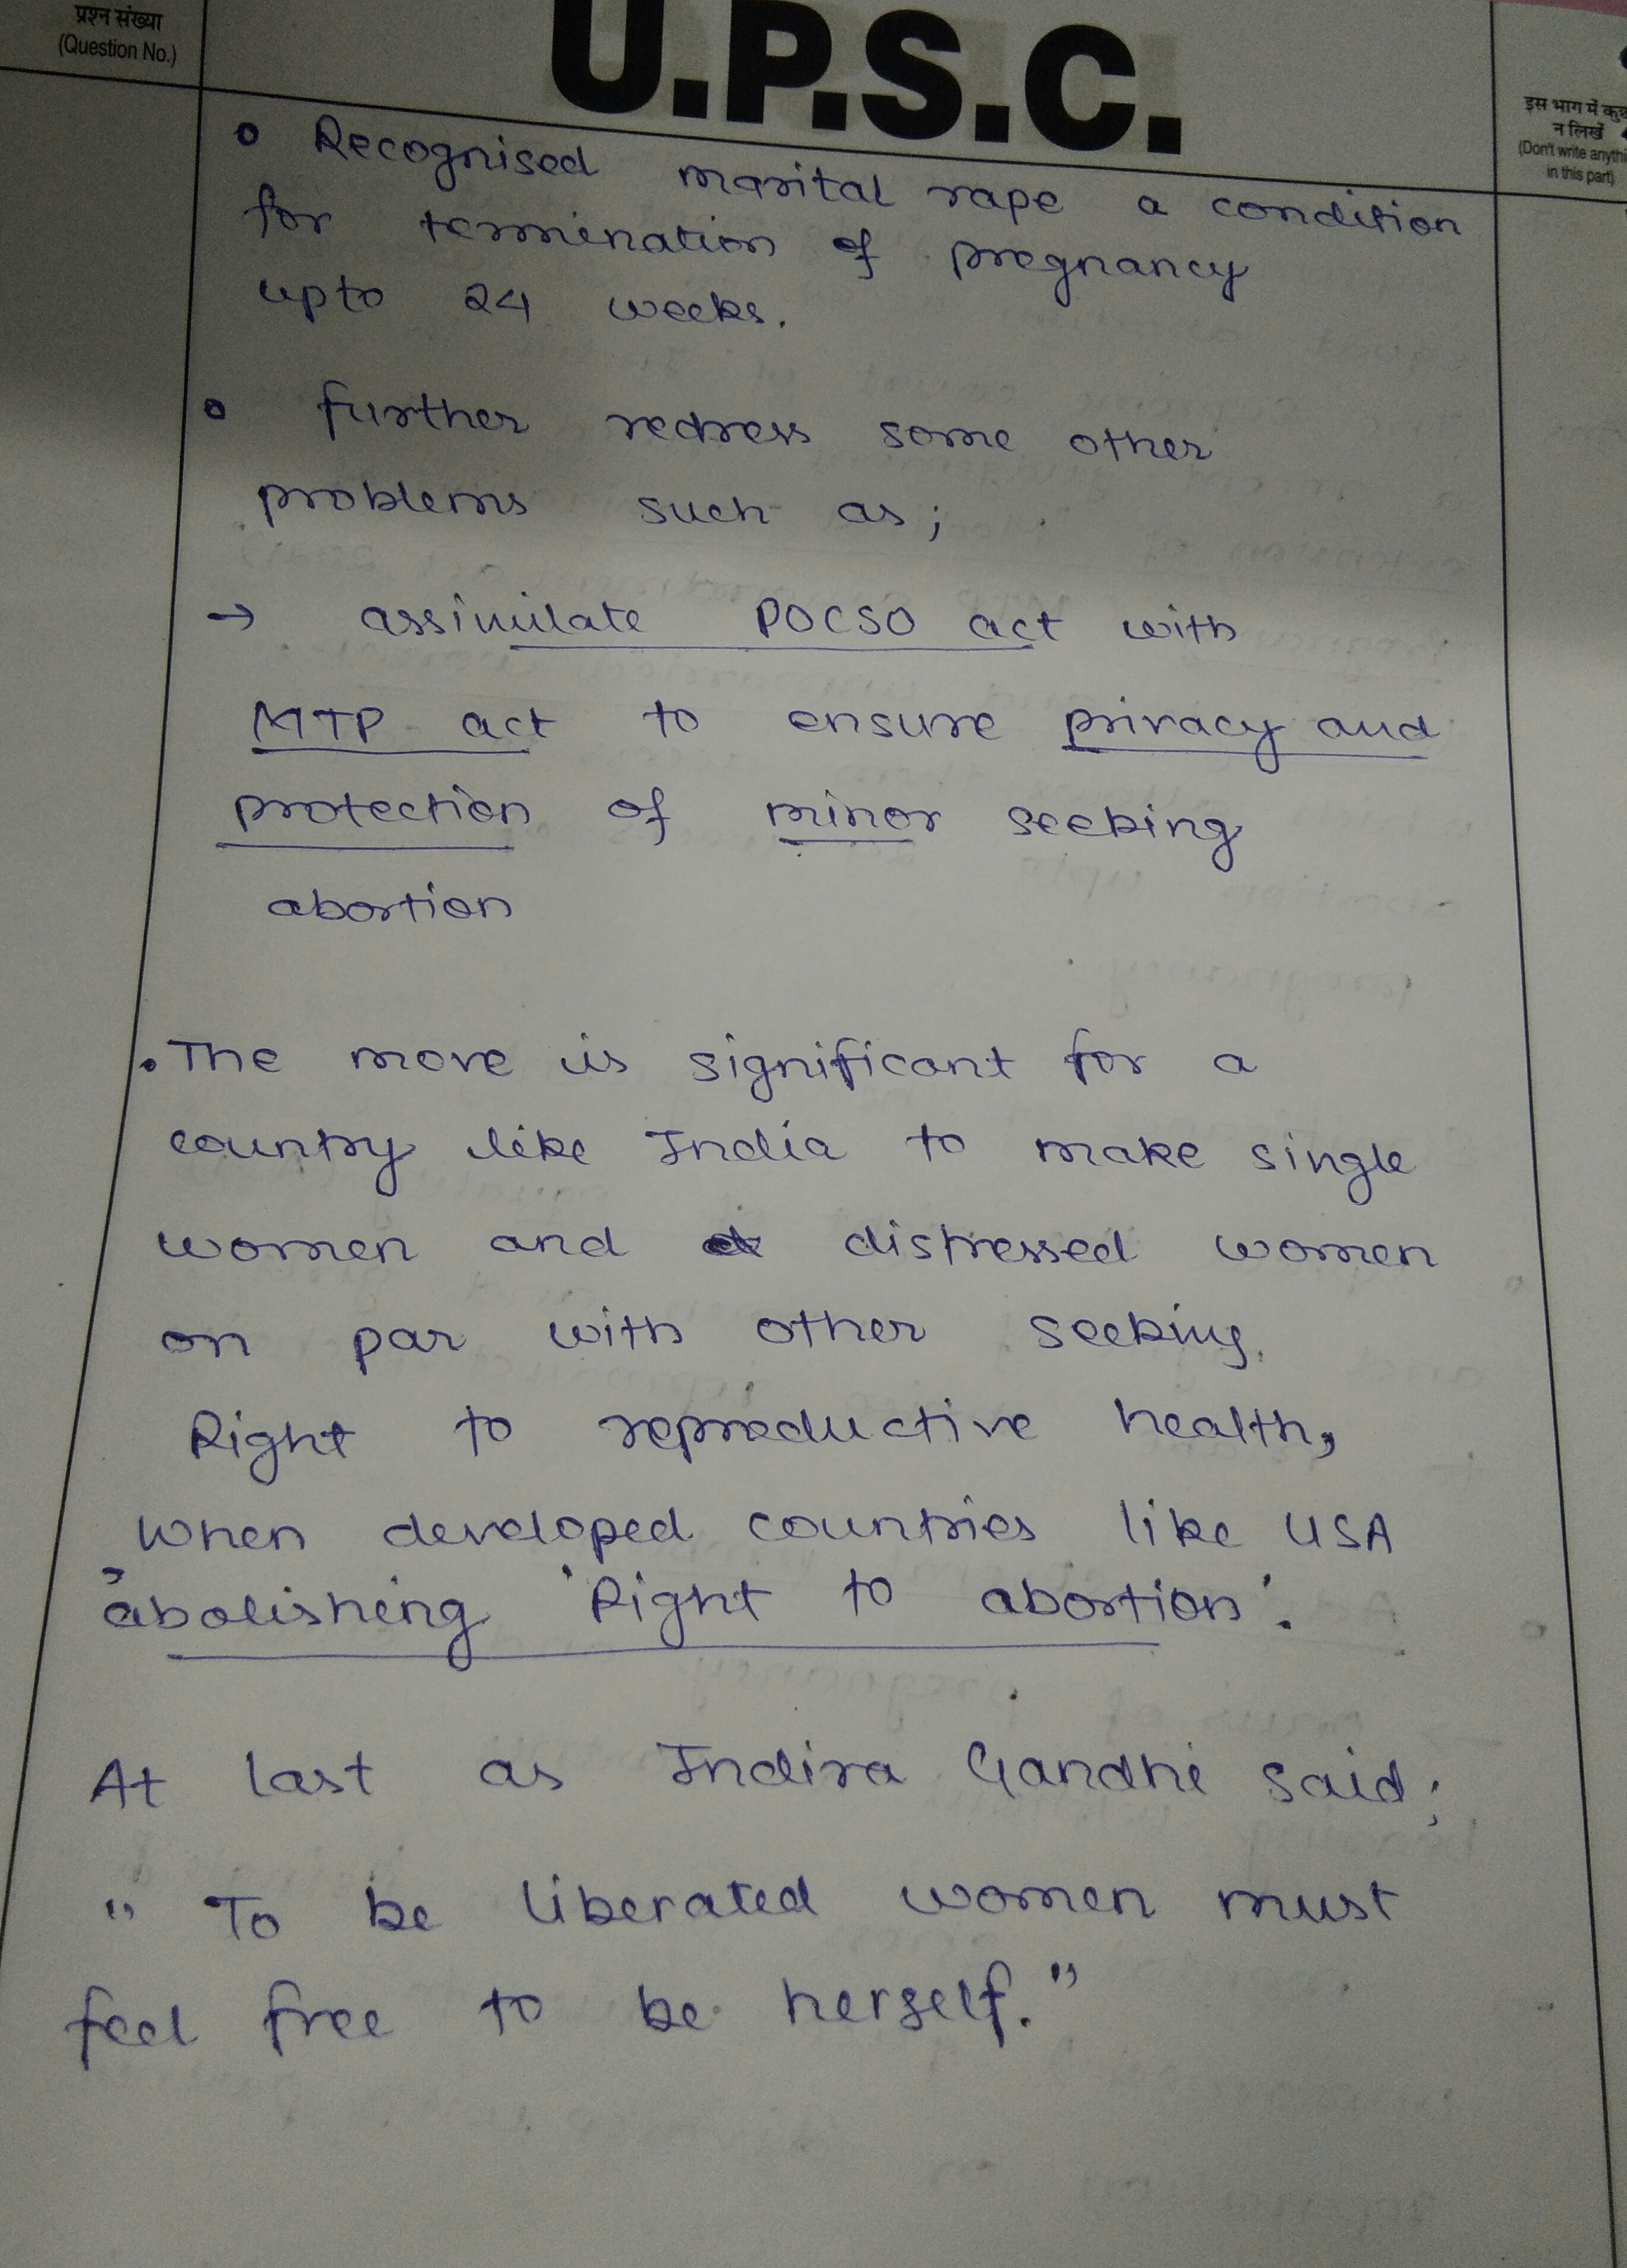 प्रश्न संख्या
(Question No.)
U.P.S.C.
इस भाग में कुछ
न लिखें
(Don't write anythi
in this part)
o Recognised marital rape a condition
for termination of pregnancy
upto 24 weeks.
o further redress some other
problems such as;
→ assimilate POCSO act with
MTP act to ensure privacy and
protection of minor seeking
abortion
• The move is significant for a
country like India to make single
women and distressed women
on par with other seeking
Right to reproductive health,
when developed countries like USA
abolishing 'Right to abortion'.
At last as Indira Gandhi said;
" To be liberated women must
feel free to be herself."